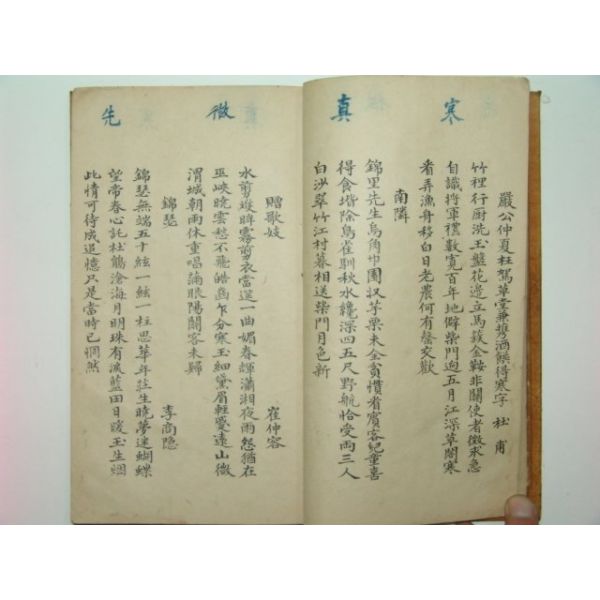 寒
嚴公仲夏枉駕草堂兼携酒饌得寒字 杜甫
竹裡行廚洗玉盤花邊立馬簇金鞍非關使者徵求急
自識將軍禮數寬百年地僻柴門迥五月江深草閣寒
看弄漁舟移白日老農何有罄交歡
真
南隣
錦里先生烏角巾園收芋栗未全貧慣看賓客兒童喜
得食堦除鳥雀馴秋水纔深四五尺野航恰受兩三人
白沙翠竹江村暮相送柴門月色新
微
贈歌妓 崔仲容
水剪雙眸霧剪衣當筵一曲媚春輝瀟湘夜雨怨猶在
巫峽曉雲愁不飛皓齒乍分寒玉細黛眉輕蹙遠山微
渭城朝雨休重唱滿眼陽關客未歸
先
錦瑟 李商隐
錦瑟無端五十絃一絃一柱思華年莊生曉夢迷蝴蝶
望帝春心託杜鵑滄海月明珠有淚藍田日暖玉生烟
此情可待成追憶只是當時已惘然